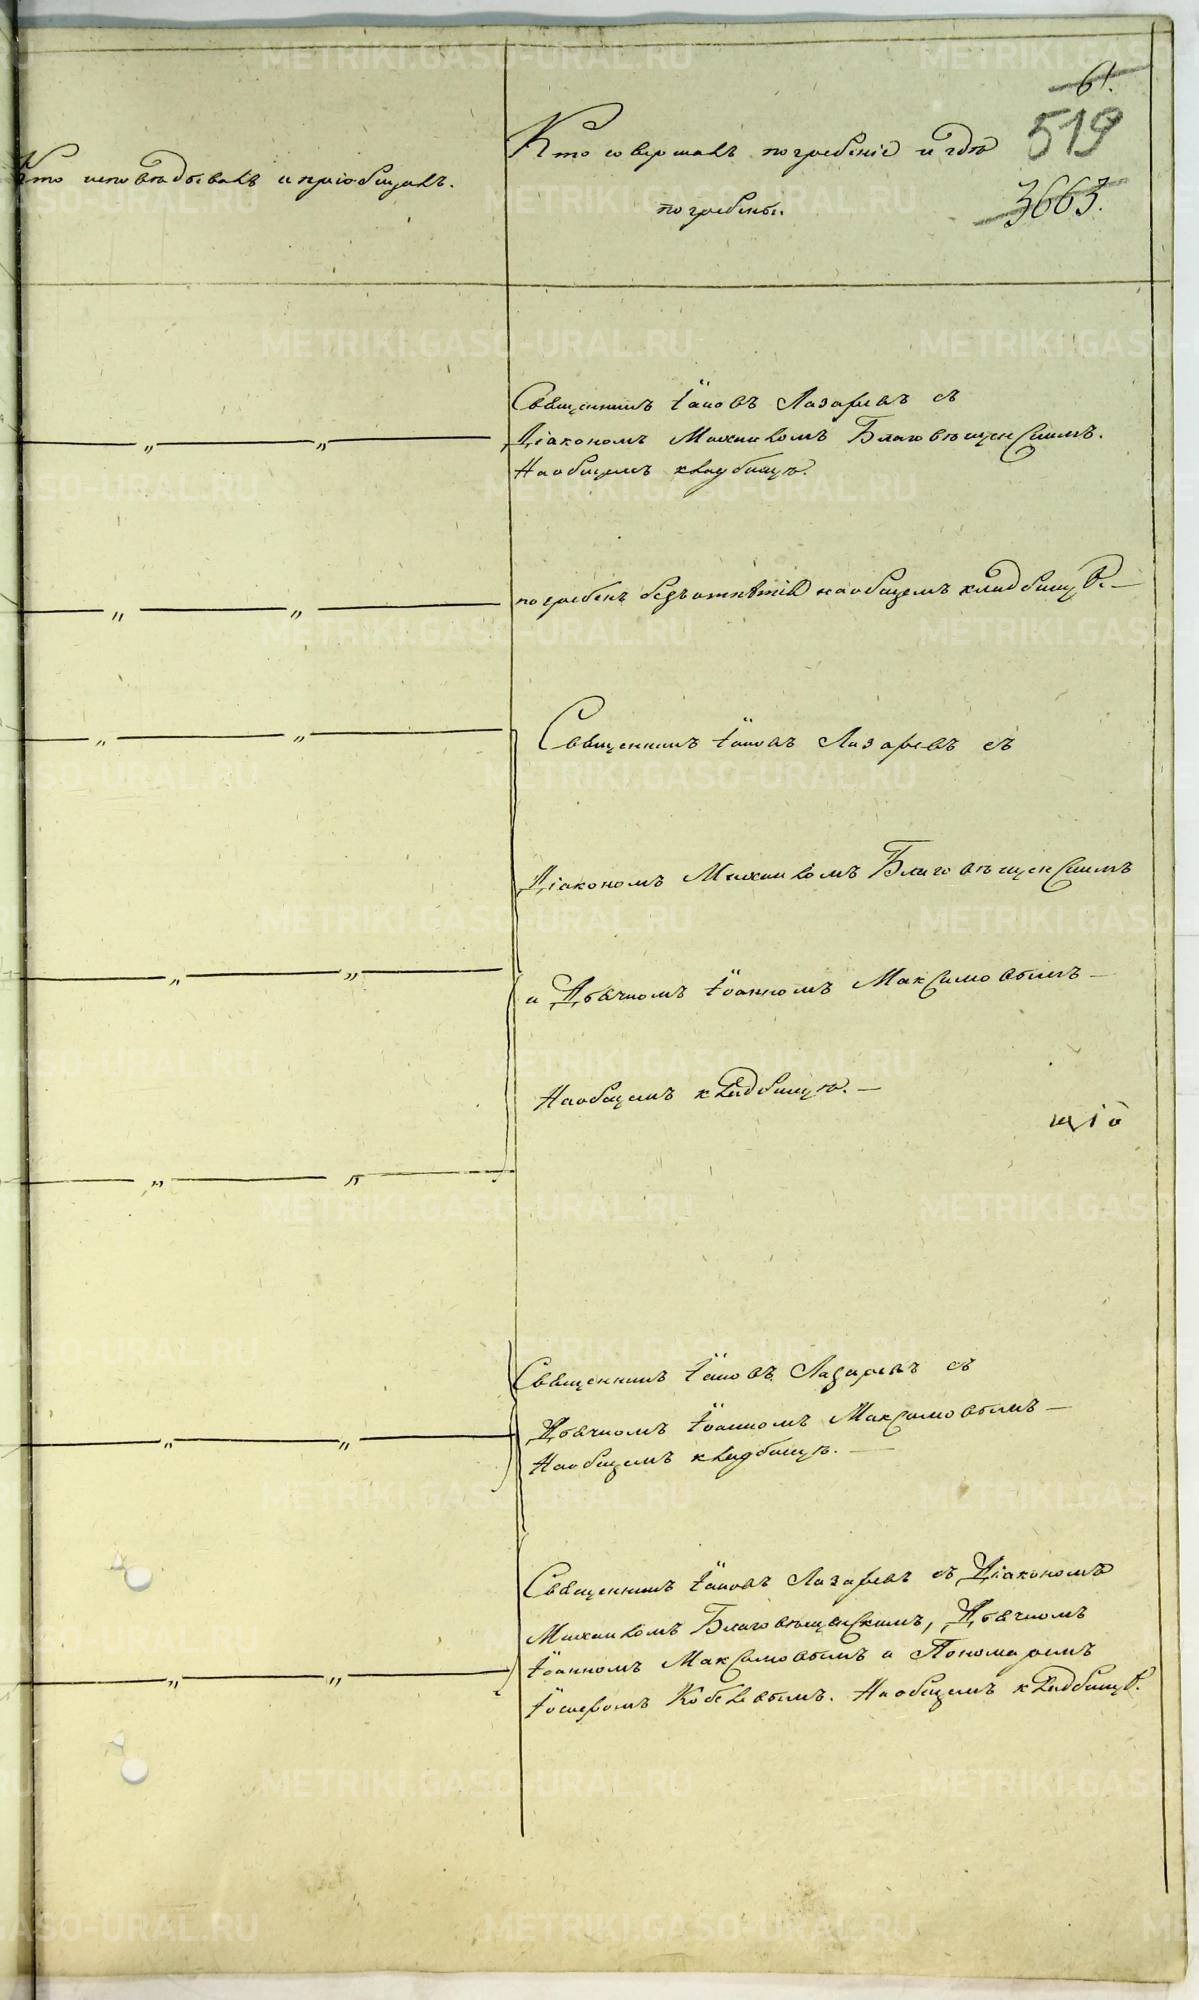 61.
519
3663.
Кто исповѣдывалъ и пріобщалъ.
Кто совершалъ погребеніе и гдѣ
погребены.
Священникъ Іаковъ Лазаревъ съ
Діакономъ Михаиломъ Благовѣщенскимъ.
На общемъ кладбищѣ.
погребенъ безъ отпѣтія на общемъ кладбищѣ. —
Священникъ Іаковъ Лазаревъ съ
Діакономъ Михаиломъ Благовѣщенскимъ
и Дьячкомъ Іоанномъ Максимовымъ —
На общемъ кладбищѣ. —
щіо
Священникъ Іаковъ Лазаревъ съ
Дьячкомъ Іоанномъ Максимовымъ —
На общемъ кладбищѣ. —
Священникъ Іаковъ Лазаревъ съ Діакономъ
Михаиломъ Благовѣщенскимъ, Дьячкомъ
Іоанномъ Максимовымъ и Пономаремъ
Іосифомъ Кобелевымъ. На общемъ кладбищѣ.
METRIKI.GASO-URAL.RU